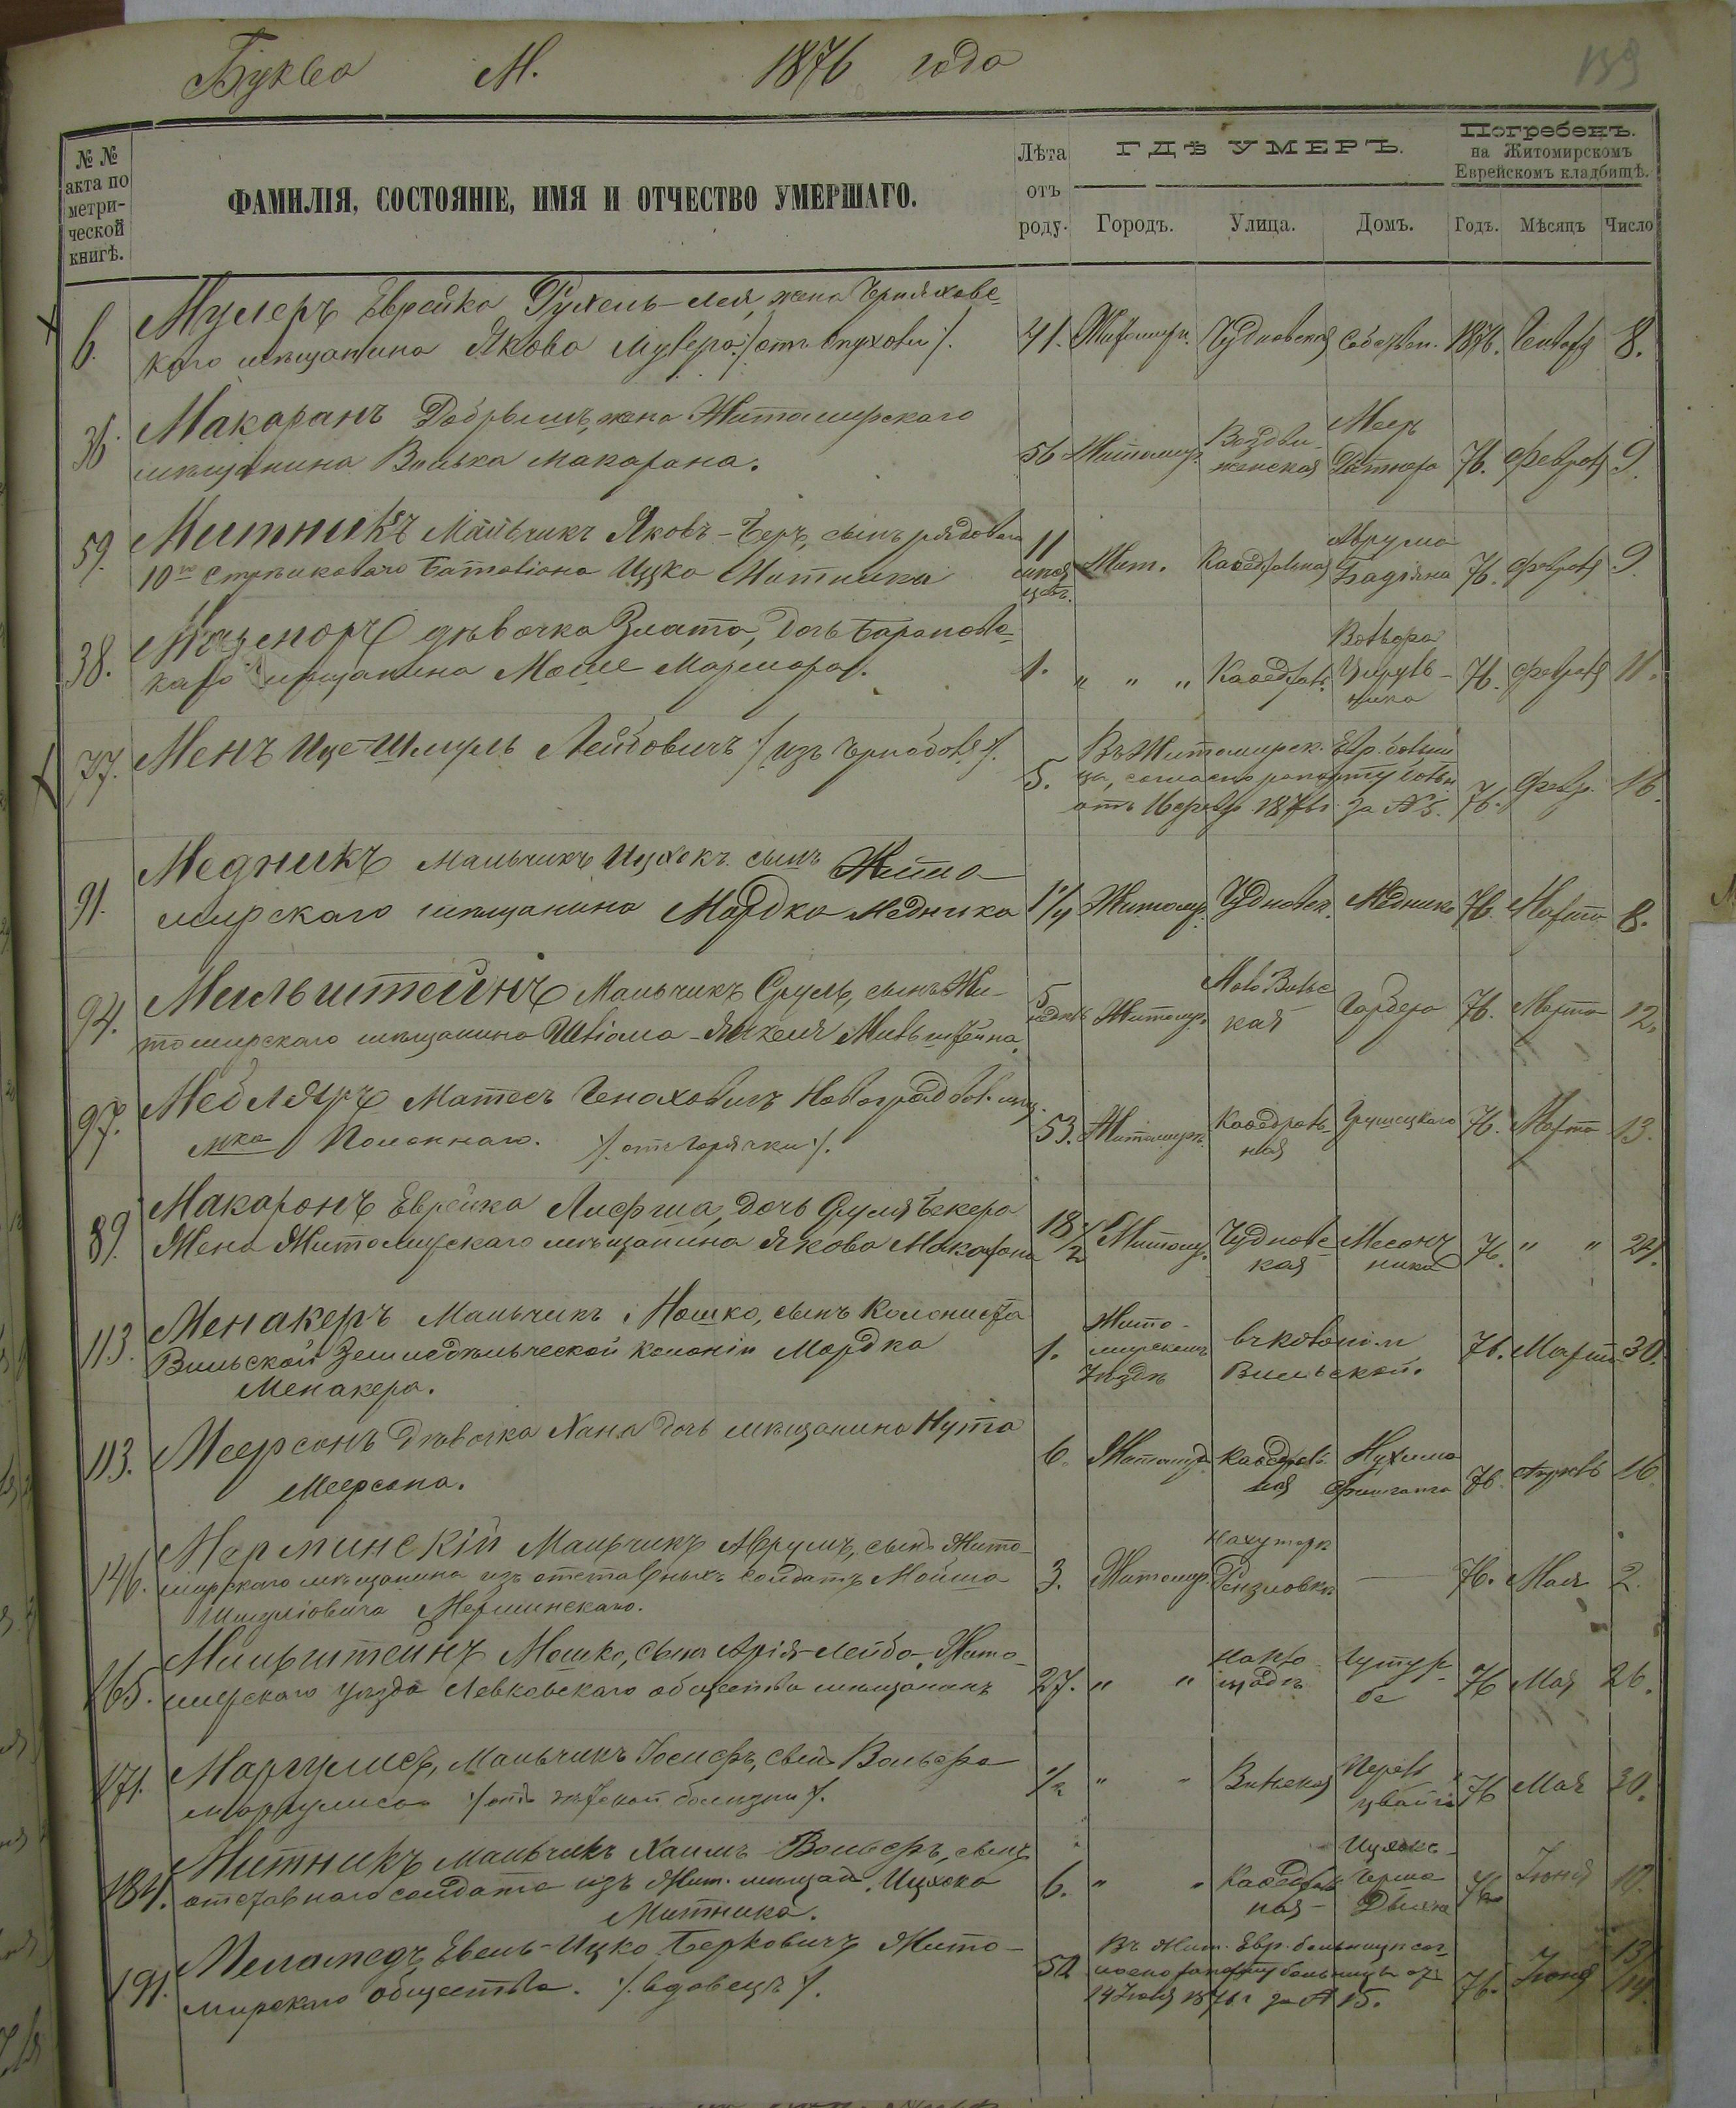 Буква М. 1876 года
139
№ № акта по метрической книгѣ.
ФАМИЛІЯ, СОСТОЯНІЕ, ИМЯ И ОТЧЕСТВО УМЕРШАГО.
Лѣта отъ роду.
ГДѢ УМЕРЪ.
Городъ. Улица. Домъ.
Погребенъ.
на Житомирскомъ
Еврейскомъ кладбищѣ.
Годъ. Мѣсяцъ Число
6. Мулеръ Еврейка Рухель-Лея, жена Черняховс-
каго мѣщанина Якова Мулера /отъ опухоли/. 41. Житомир. Чудновская собствен. 1876. Генваря 8.
36. Макаранъ Добрышъ, жена Житомирскаго
мѣщанина Волька Макарана. 56 Житомир. Воздви-
женская Меер
Датнера 76. Февраля 9.
59. Митникъ Мальчикъ Яковъ-Беръ, сынъ рядоваго
10го Стрѣлковаго Баталіона Ицка Митника 11
мѣся
цев. Жит. Каѳедральная Аврума
76. Февраля 9.
38. дѣвочка Злата, дочь Бараповс-
каго мѣщанина Мошe 1. " " " Каѳедрал. Вольфа
Цируль-
ника 76. Февраля 11.
77. Менъ Ице-Шмуль Лейбовичъ /изъ Чернобыля/. 5. Въ Житомирск. Евр. больни
цѣ, согласно рапорту больн.
отъ 16 февр 1876 г. за № 5. 76. Февр. 16.
91. Медникъ Мальчикъ Ицхокъ сынъ Жито-
мирскаго мѣщанина Мордка Медника 1/4 Житомир. Чудновск. Медника 76 Марта 8.
94. Мильштейнъ Мальчикъ Сруль, сынъ Жи-
томирскаго мѣщанина Шлiома-Янкеля Мильштейна. 5
недѣль Житомир. Ново Вильс
кая Гарбера 76. Марта 12.
97. Мебляръ Матесъ Генаховичъ Новоградвол. мѣщ.
Полоннаго. /отъ горячки/. 53. Житомир. Каѳедраль
ная 76. Марта 13.
89. Макаронъ Еврейка Лифша, дочь Сруля Бекера
Жена Житомирскаго мѣщанина Якова Макарона 18 1/2 Житомир. Чудновс
кая Месонж
ника 76. " " 24.
113. Менакеръ Мальчикъ Мошко, сынъ Колониста
Вильской Земледѣльческой колоніи Мордка
Менакера. 1. Жито-
мирскомъ
Уѣздѣ въ колоніи
Вильской. 76. Марта 30.
113. Меерсонъ Дѣвочка Хана дочь мѣщанина Нута
Меерсона. 6. Житомир. Каѳедраль
ная Нухима
76. Апрѣль 16
146. Мерминскій Мальчикъ Аврумъ, сынъ Жито-
мирскаго мѣщанина изъ отставныхъ солдатъ Мойша
Шмуліовича Мерминскаго. 3. Житомир. На хуторѣ
— 76. Мая 2.
165. Мильштейнъ Мошко, сынъ Арія-Лейба, Жито-
мирскаго уѣзда Левковскаго общества мѣщанинъ 27. " " на пло
щадѣ 76 Мая 26.
171. Маргулисъ, Мальчикъ Іосифъ, сынъ Вольфа
Маргулиса /отъ дѣтской болѣзни/. 1/2 " " Вильская Перель
цвайга 76 Мая 30.
184. Митникъ мальчикъ Хаимъ-Вольфъ, сынъ
отставнаго солдата изъ Жит. мѣщан. Ицхока
Митника. 6. " " Каѳедраль
ная Ицхокъ-
Герша
76 Іюня 10.
191. Меламедъ Евель-Ицко Берковичъ Жито-
мирскаго общества. /вдовецъ/. 52 Въ Жит. Евр. больницѣ сог
ласно рапорту больницы отъ
14 Іюня 1876 г за № 15. 76. Іюня 13/14.